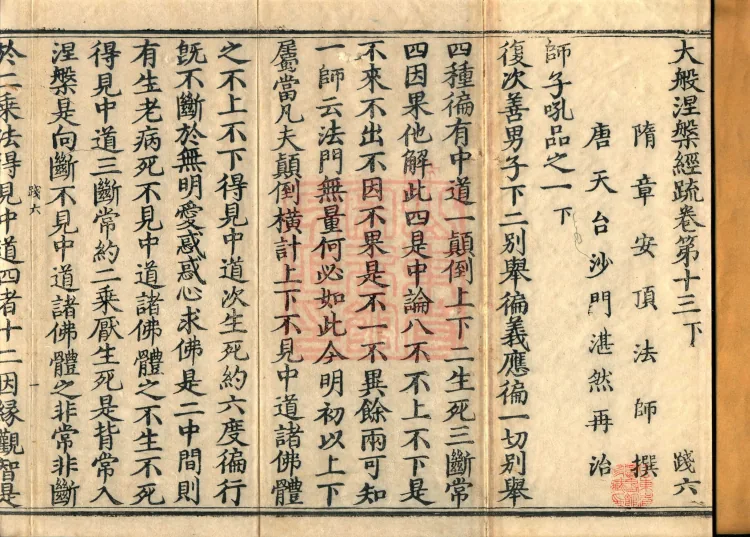 大般涅槃經疏卷第十三下 踐六
隋章安頂法師撰
唐天台沙門湛然再治
師子吼品之一下
復次善男子下二別舉徧義應徧一切別舉
四種徧有中道一顛倒上下二生死三斷常
四因果他解此四是中論八不不上不下是
不來不出不因不果是不一不異餘兩可知
一師云法門無量何必如此今明初以上下
屬當凡夫顛倒橫計上下不見中道諸佛體
之不上不下得見中道次生死約六度徧行
旣不斷於無明愛惑惑心求佛是二中間則
有生老病死不見中道諸佛體之不生不死
得見中道三斷常約二乘厭生死是背常入
涅槃是向斷不見中道諸佛體之非常非斷
踐六
一
於二乘法得見中道四者十二因緣觀智是